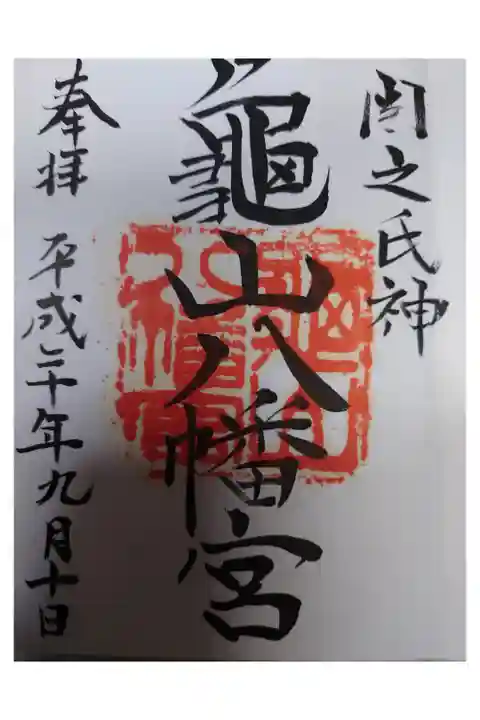 関之氏神
龜山八幡宮
奉拝 平成二十年九月十日